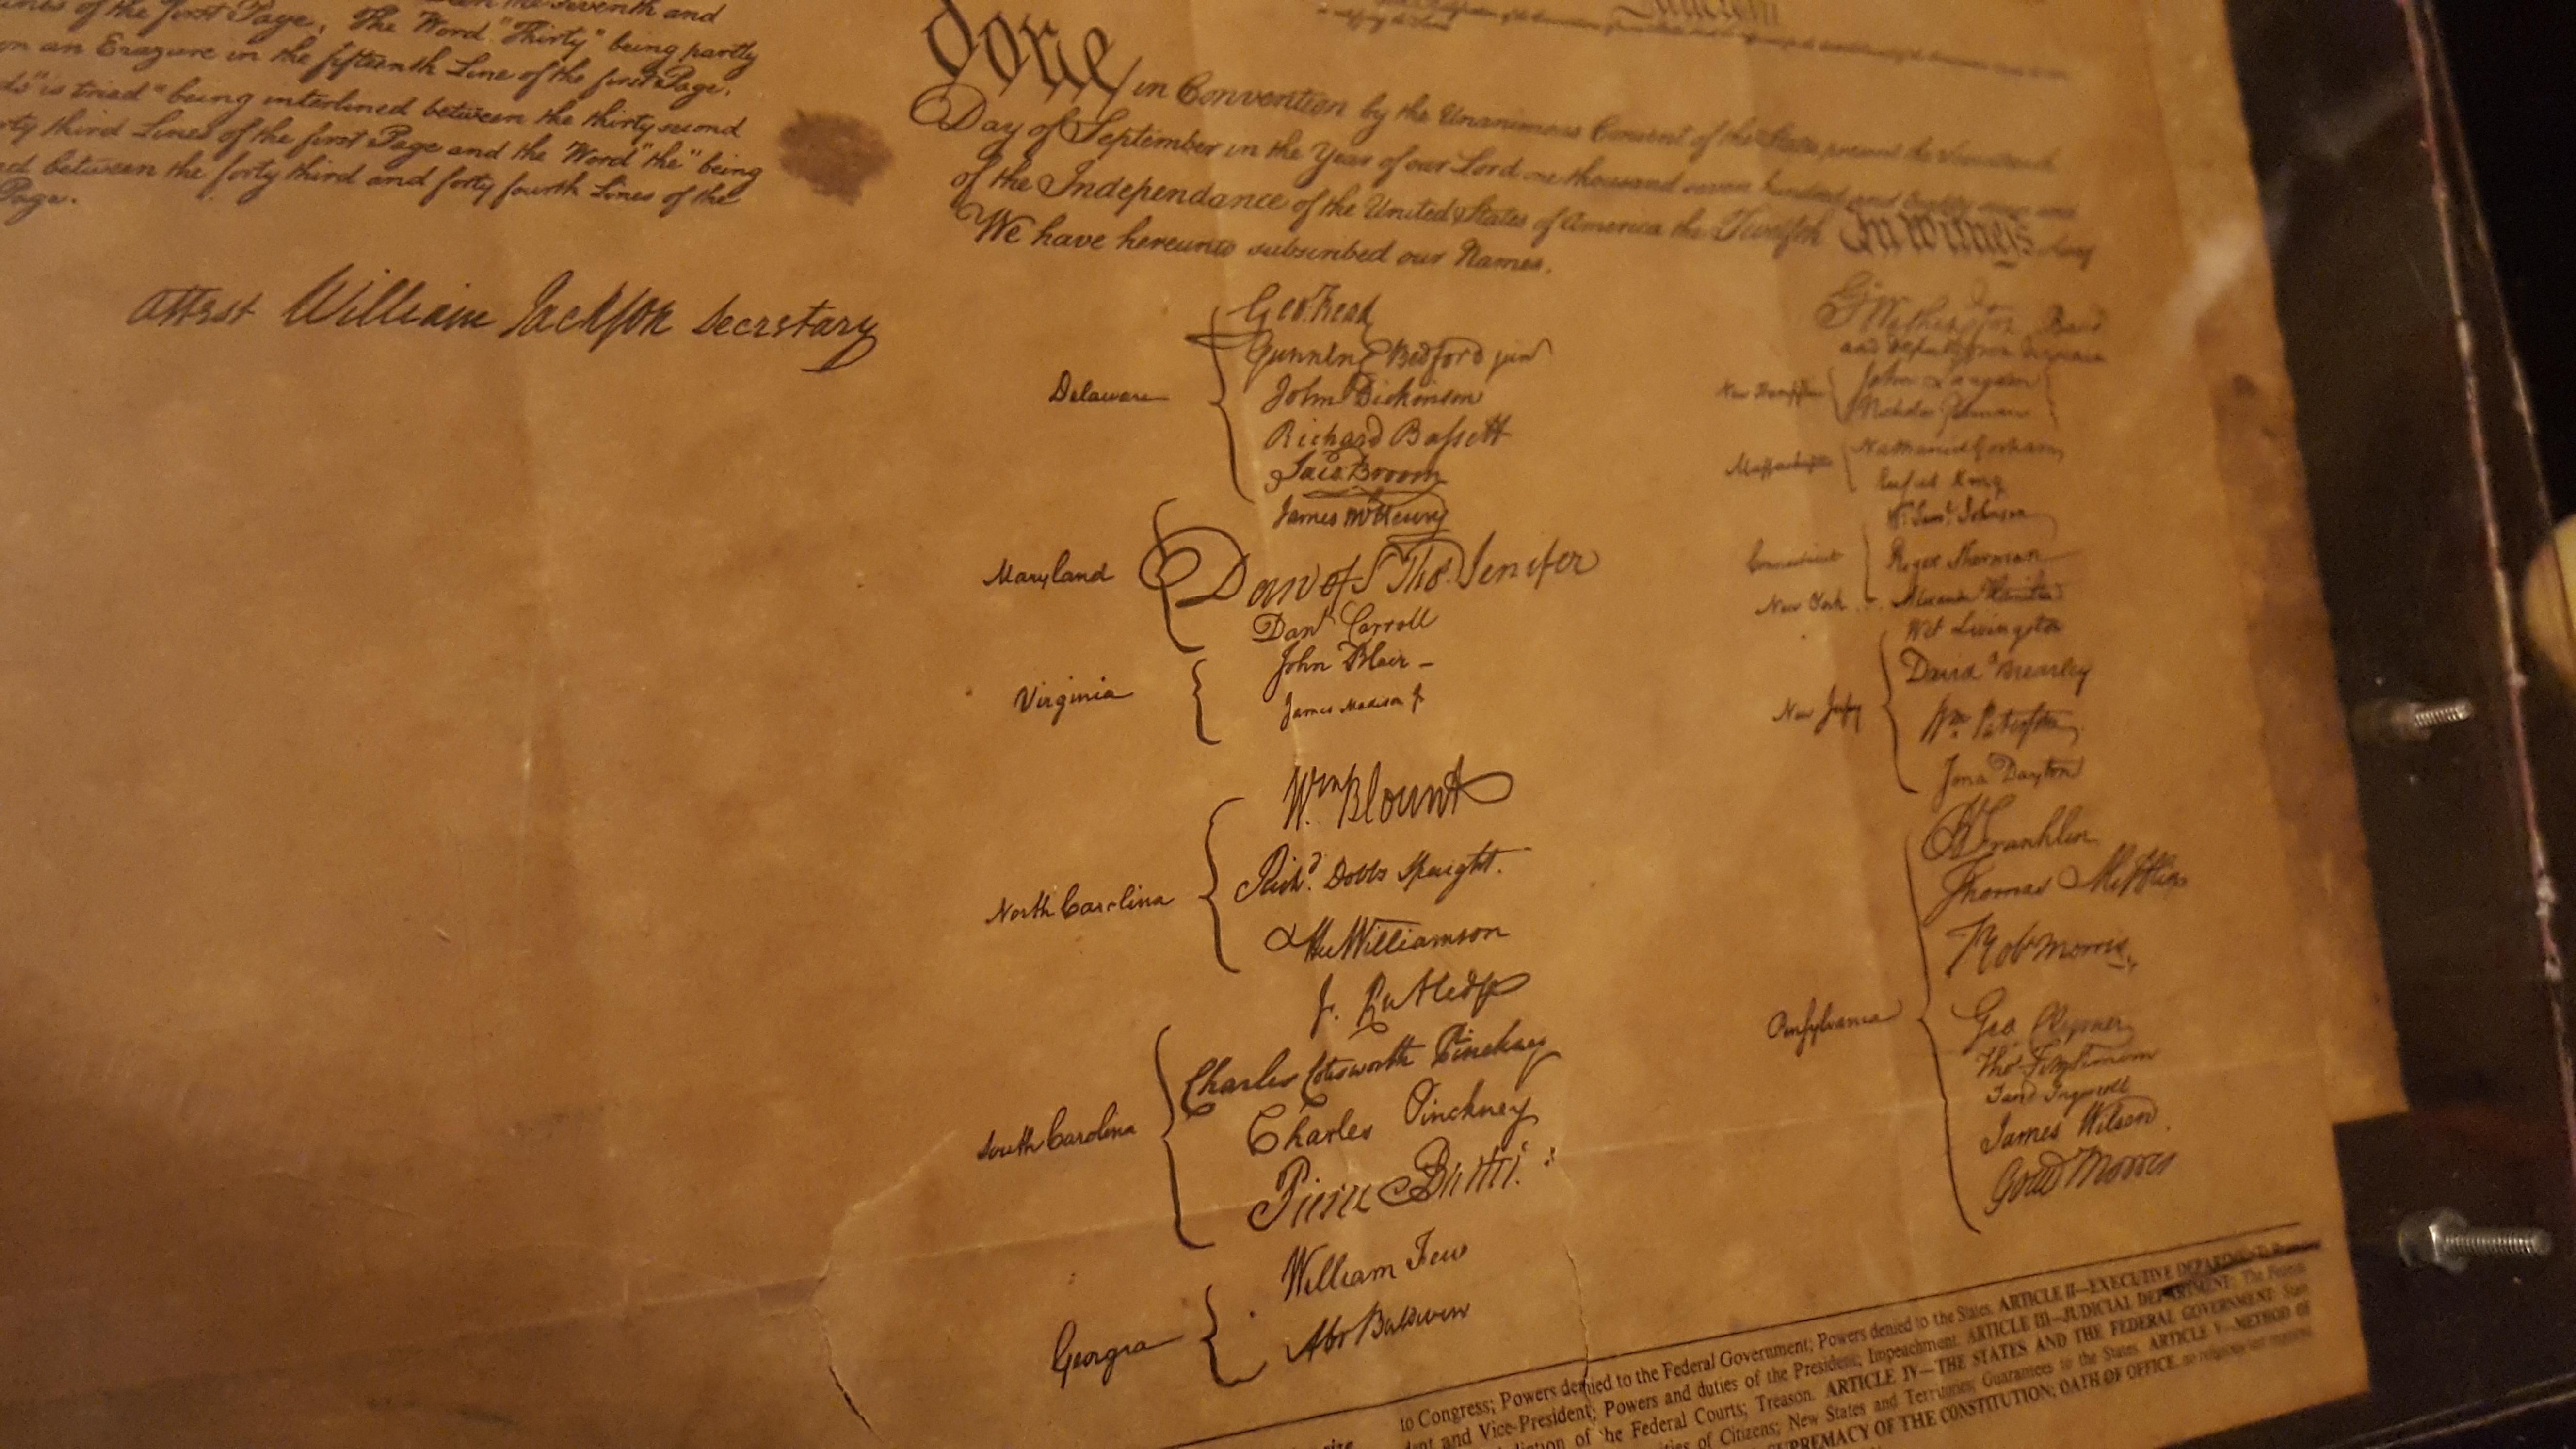 lines of the first Page, The Word "Thirty" being partly
on an Erazure in the fifteenth Line of the first Page.
"is tried" being interlined between the thirty second
third Lines of the first Page and the Word "the" being
between the forty third and forty fourth Lines of the
Page.
attest William Jackson Secretary
done in Convention by the Unanimous Consent of the States present the Seventeenth
Day of September in the Year of our Lord one thousand seven hundred and Eighty seven and
of the Independance of the United States of America the Twelfth In Witness
We have hereunto subscribed our Names,
Delaware
Geo: Read
Gunning Bedford jun
John Dickinson
Richard Bassett
Jaco: Broom
Maryland
James McHenry
Dan of St Thos. Jenifer
Danl Carroll
Virginia
John Blair –
James Madison Jr
North Carolina
Wm. Blount
Richd. Dobbs Spaight.
Hu Williamson
South Carolina
J. Rutledge
Charles Cotesworth Pinckney
Charles Pinckney
Pierce Butler.
Georgia
William Few
Abr Baldwin
G. Washington
and deputy from Virginia
New Hampshire
John Langdon
Nicholas Gilman
Massachusetts
Nathaniel Gorham
Rufus King
Connecticut
Wm. Saml. Johnson
Roger Sherman
New York . . . Alexander Hamilton
New Jersey
Wil Livingston
David Brearley
Wm. Paterson.
Jona Dayton
Pensylvania
B Franklin
Thomas Mifflin
Robt Morris.
Geo. Clymer
Thos. FitzSimons
Jared Ingersoll
James Wilson.
Gouv Morris
to Congress; Powers denied to the Federal Government; Powers denied to the States. ARTICLE II—EXECUTIVE DEPARTMENT:
and Vice-President; Powers and duties of the President; Impeachment. ARTICLE III—JUDICIAL DEPARTMENT: The Federal
of the Federal Courts; Treason. ARTICLE IV—THE STATES AND THE FEDERAL GOVERNMENT: State
of Citizens; New States and Territories; Guarantees to the States. ARTICLE V—METHOD OF
SUPREMACY OF THE CONSTITUTION; OATH OF OFFICE, no religious test required.